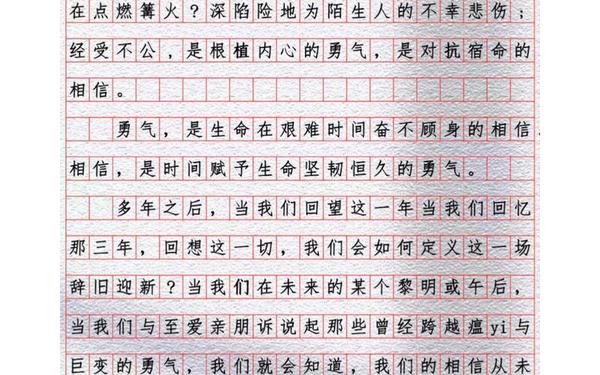 在点燃篝火？深陷险地为陌生人的不幸悲伤；
经受不公，是根植内心的勇气，是对抗宿命的
相信。
勇气，是生命在艰难时间奋不顾身的相信.
相信，是时间赋予生命坚韧恒久的勇气。
多年之后，当我们回望这一年当我们回忆
那三年，回想这一切，我们会如何定义这一场
辞旧迎新？当我们在未来的某个黎明或午后，
当我们与至爱亲朋诉说起那些曾经跨越瘟yi与
巨变的勇气，我们就会知道，我们的相信从未